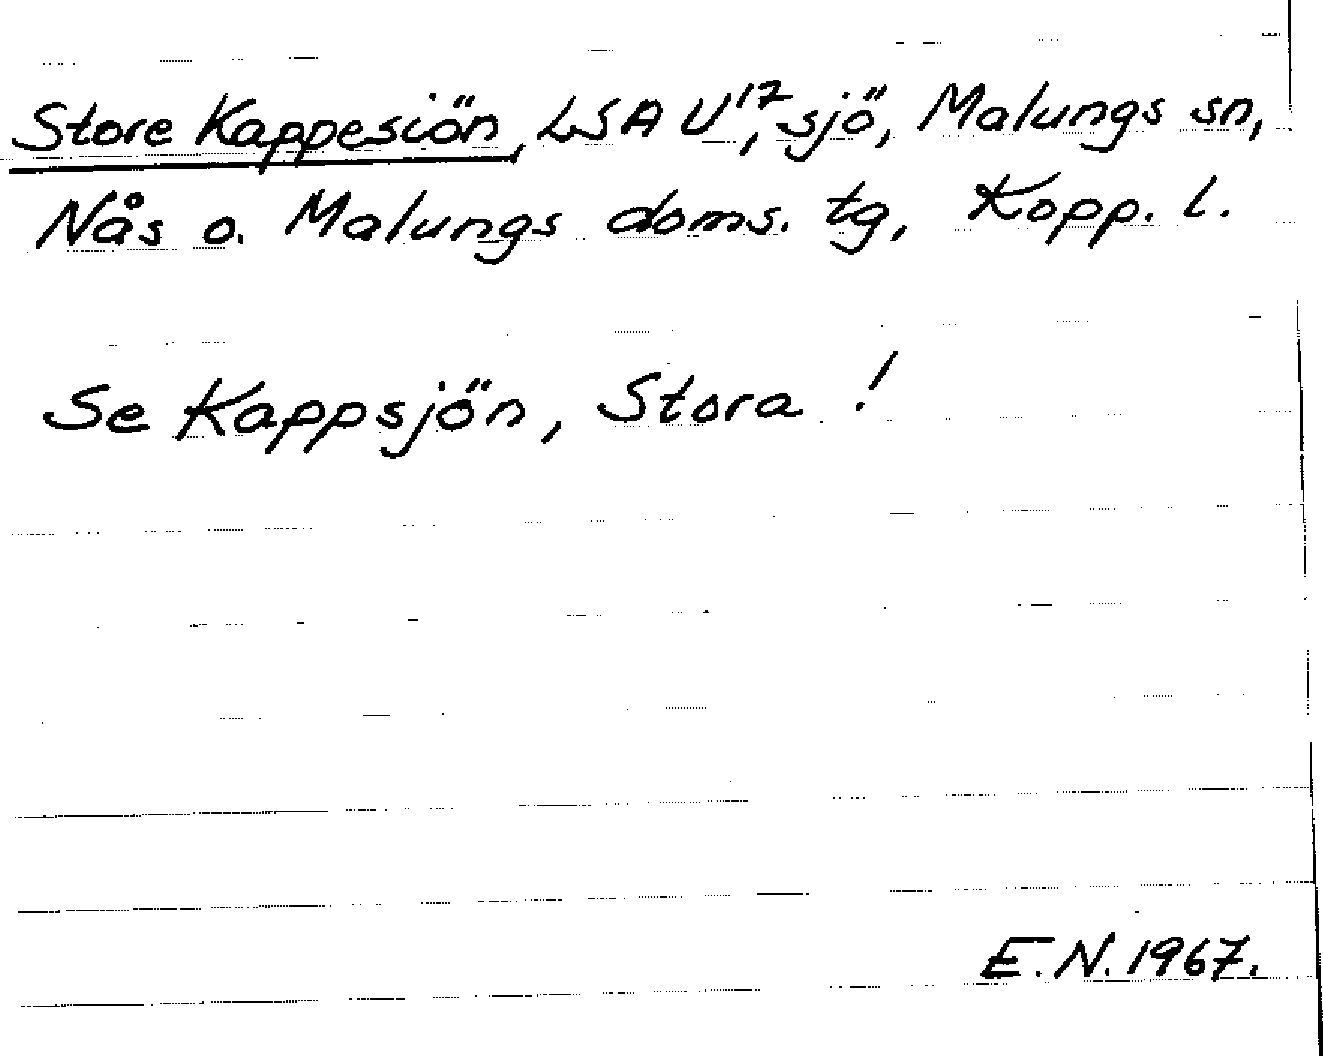 Store Kappesiön, LSA U¹⁷, sjö, Malungs sn,
Nås o. Malungs doms. tg, Kopp. l.
Se Kappsjön, Stora !
E.N. 1967.